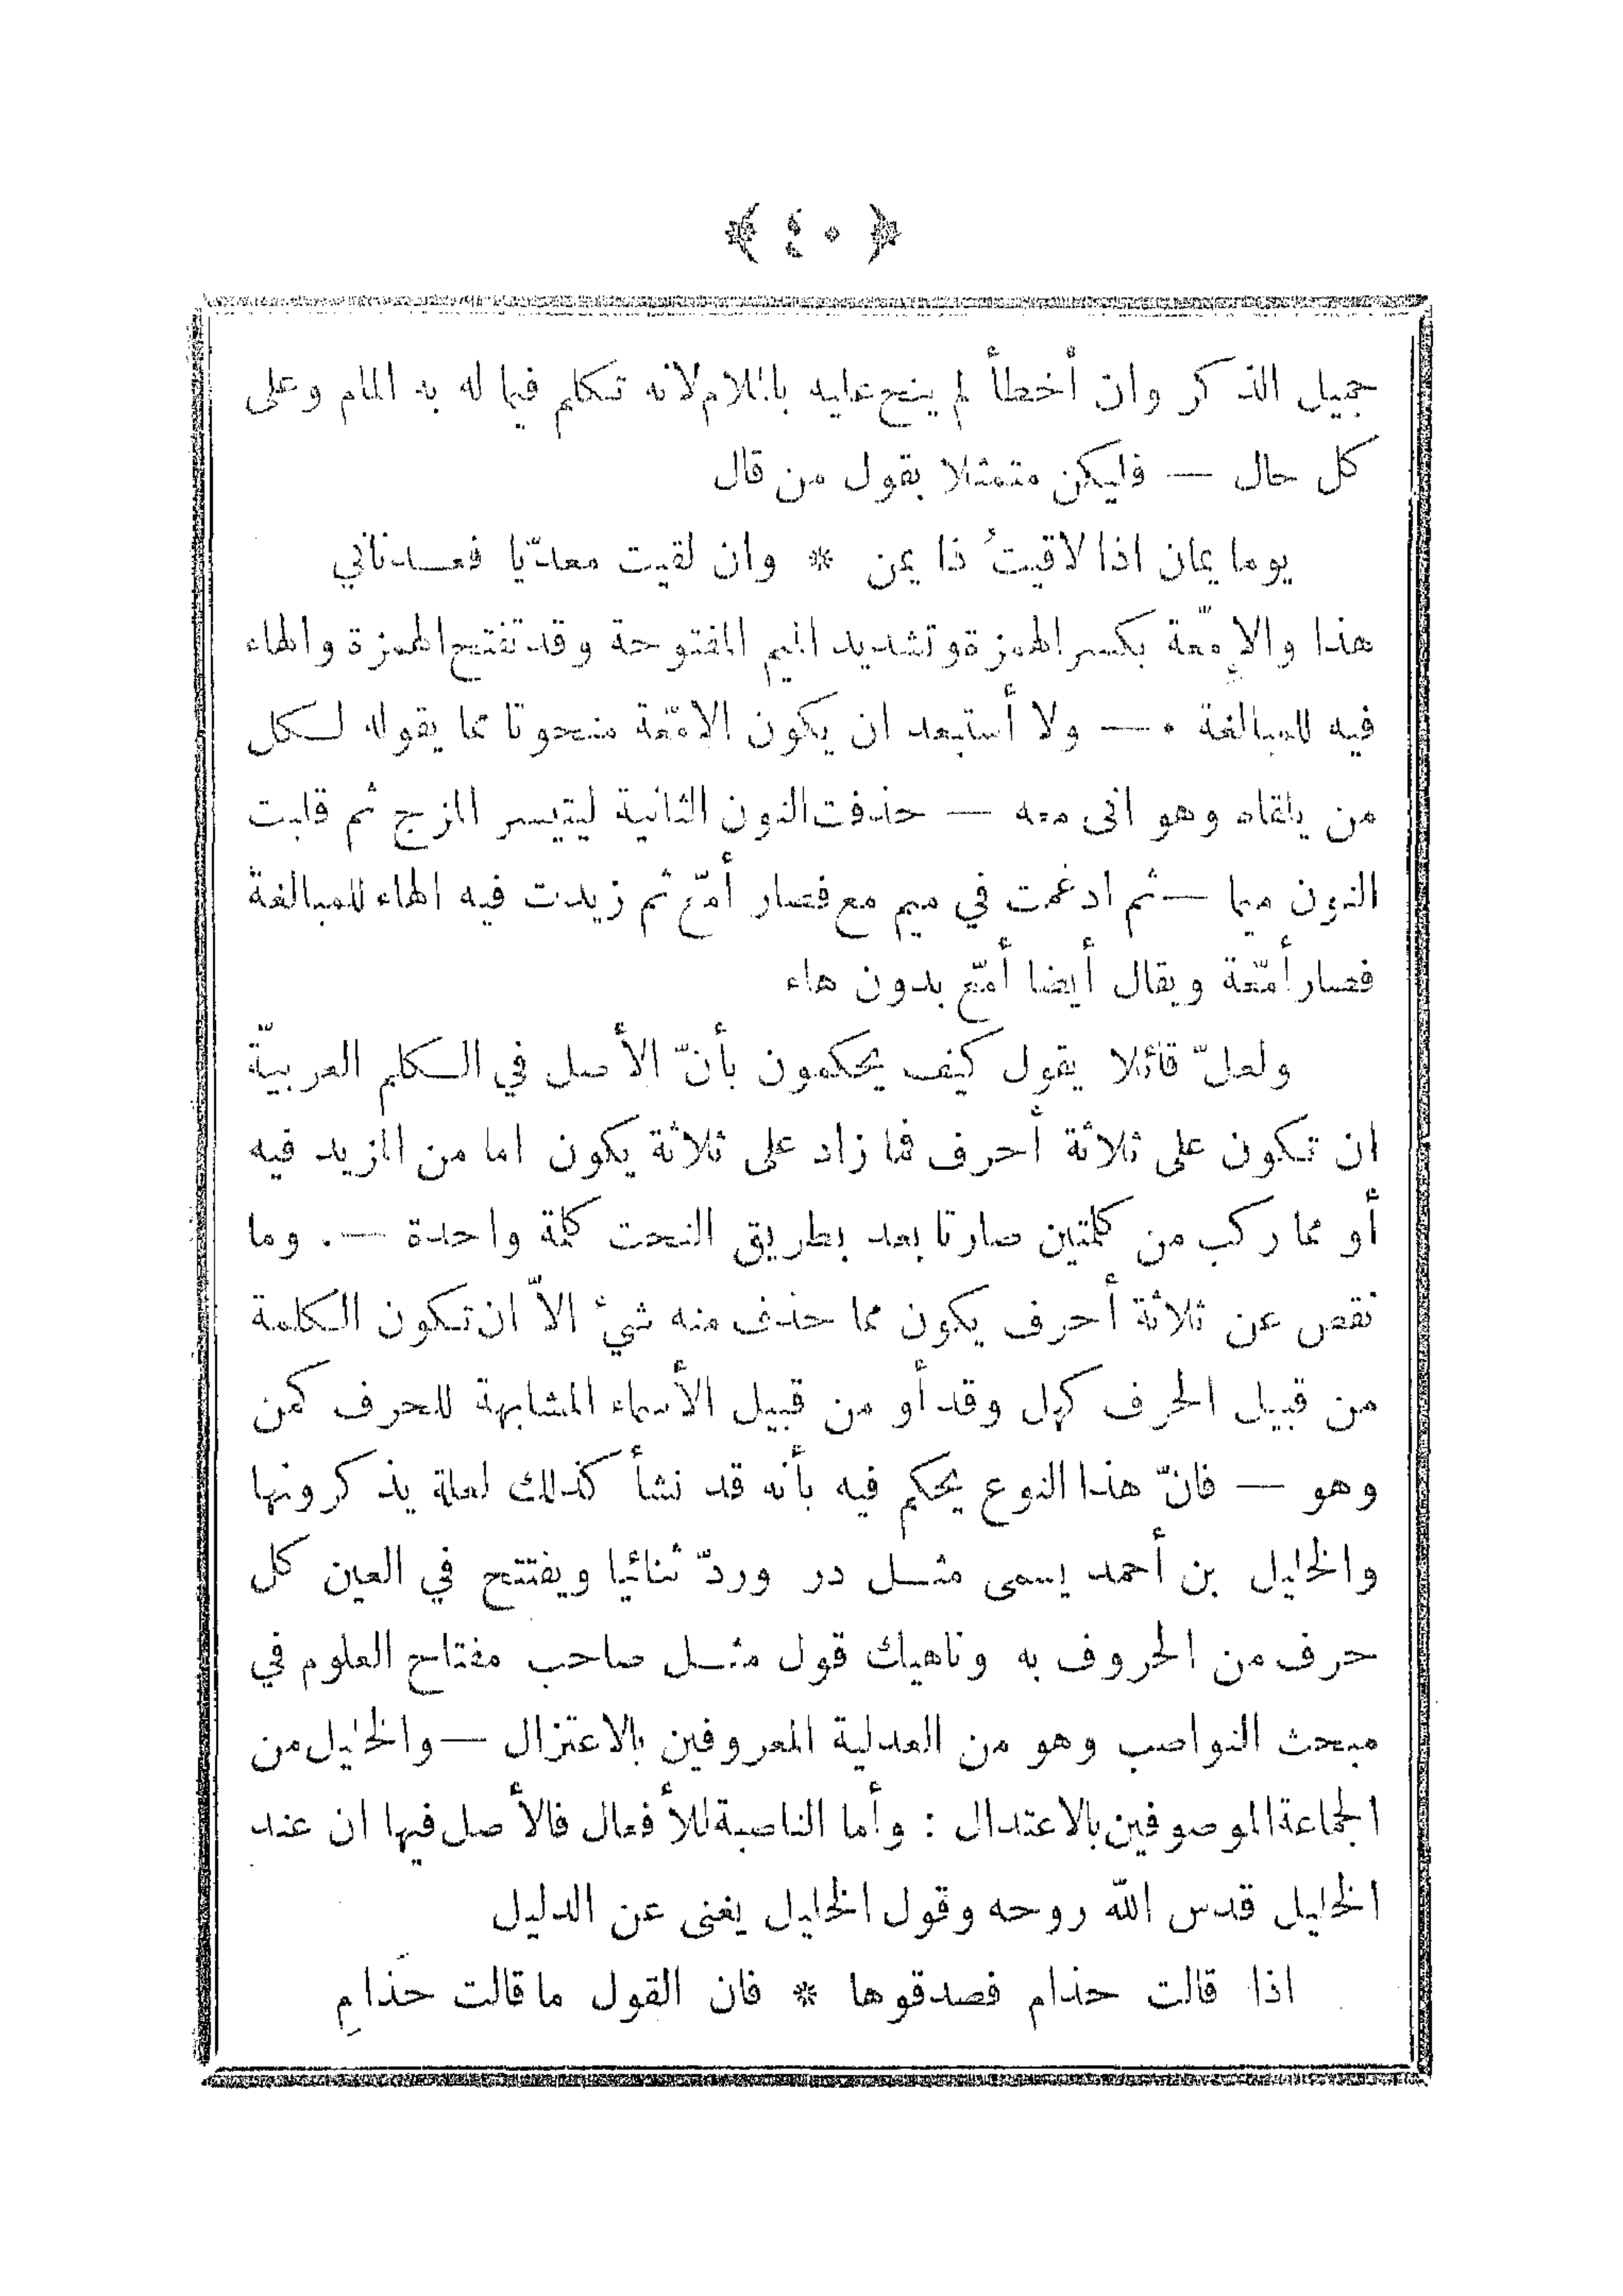 ﴿ ٤٠ ﴾
جميل الذكر وان أخطأ لم ينح عليه باللام لانه تكلم فيما له به المام وعلى
كل حال — فليكن متمثلا بقول من قال
يوما يمان اذا لاقيتُ ذا يمن * وان لقيت معدّيا فعدنانى
هذا والإمّعة بكسر الهمزة وتشديد الميم المفتوحة وقد تفتح الهمزة والهاء
فيه للمبالغة ٠ — ولا أستبعد ان يكون الامّعة منحوتا مما يقوله لكل
من يلقاه وهو انى معه — حذفت النون الثانية ليتيسر المزج ثم قلبت
النون ميما — ثم ادغمت في ميم مع فصار أمّع ثم زيدت فيه الهاء للمبالغة
فصار أمّعة ويقال أيضا أمّع بدون هاء
ولعلّ قائلا يقول كيف يحكمون بأنّ الأصل في الكلم العربيّة
ان تكون على ثلاثة أحرف فما زاد على ثلاثة يكون اما من المزيد فيه
أو مما ركب من كلمتين صارتا بعد بطريق النحت كلمة واحدة — . وما
نقص عن ثلاثة أحرف يكون مما حذف منه شيء الاّ ان تكون الكلمة
من قبيل الحرف كهل وقد أو من قبيل الأسماء المشابهة للحرف كمن
وهو — فانّ هذا النوع يحكم فيه بأنه قد نشأ كذلك لعلة يذكرونها
والخليل بن أحمد يسمى مثل در وردّ ثنائيا ويفتتح في العين كل
حرف من الحروف به وناهيك قول مثل صاحب مفتاح العلوم في
مبحث النواصب وهو من العدلية المعروفين بالاعتزال — والخليل من
الجماعة الموصوفين بالاعتدال : وأما الناصبة للأفعال فالأصل فيها ان عند
الخليل قدس الله روحه وقول الخليل يغنى عن الدليل
اذا قالت حذام فصدقوها * فان القول ما قالت حَذامِ